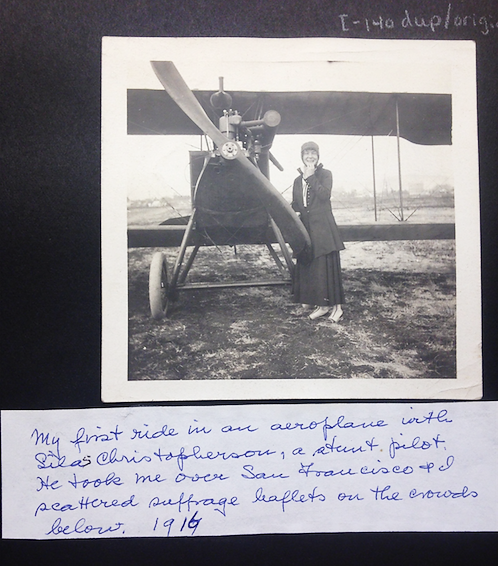 I-140 dup/orig.
My first ride in an aeroplane with
Silas Christofferson, a stunt pilot.
He took me over San Francisco & I
scattered suffrage leaflets on the crowds
below. 1916